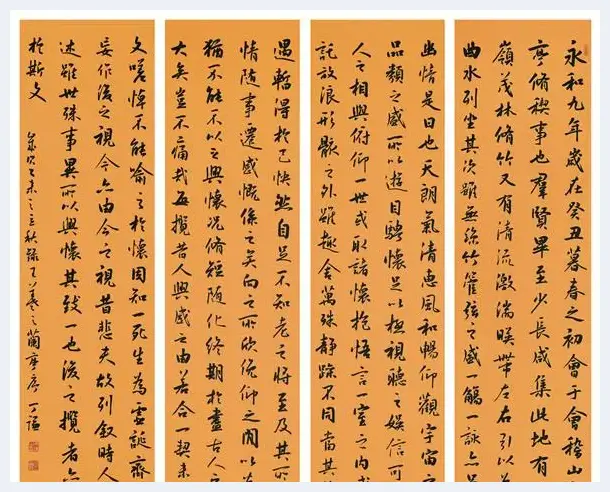 永和九年歲在癸丑暮春之初會于會稽山
亭脩稧事也羣賢畢至少長咸集此地有
嶺茂林脩竹又有清流激湍暎帶左右引以
曲水列坐其次雖無絲竹管弦之盛一觴一詠亦足
幽情是日也天朗氣清惠風和暢仰觀宇宙
品類之盛所以遊目騁懷足以極視聽之娛信可
人之相與俯仰一世或取諸懷抱悟言一室之內
託放浪形骸之外雖趣舍萬殊靜躁不同當其
遇暫得於己快然自足不知老之將至及其所
情隨事遷感慨係之矣向之所欣俛仰之間以
猶不能不以之興懷況脩短隨化終期於盡古人
大矣豈不痛哉每攬昔人興感之由若合一契未
文嗟悼不能喻之於懷固知一死生為虛誕齊
妄作後之視今亦由今之視昔悲夫故列叙時人
述雖世殊事異所以興懷其致一也後之攬者亦
於斯文
歲次乙未之立秋錄王羲之蘭亭序 丁